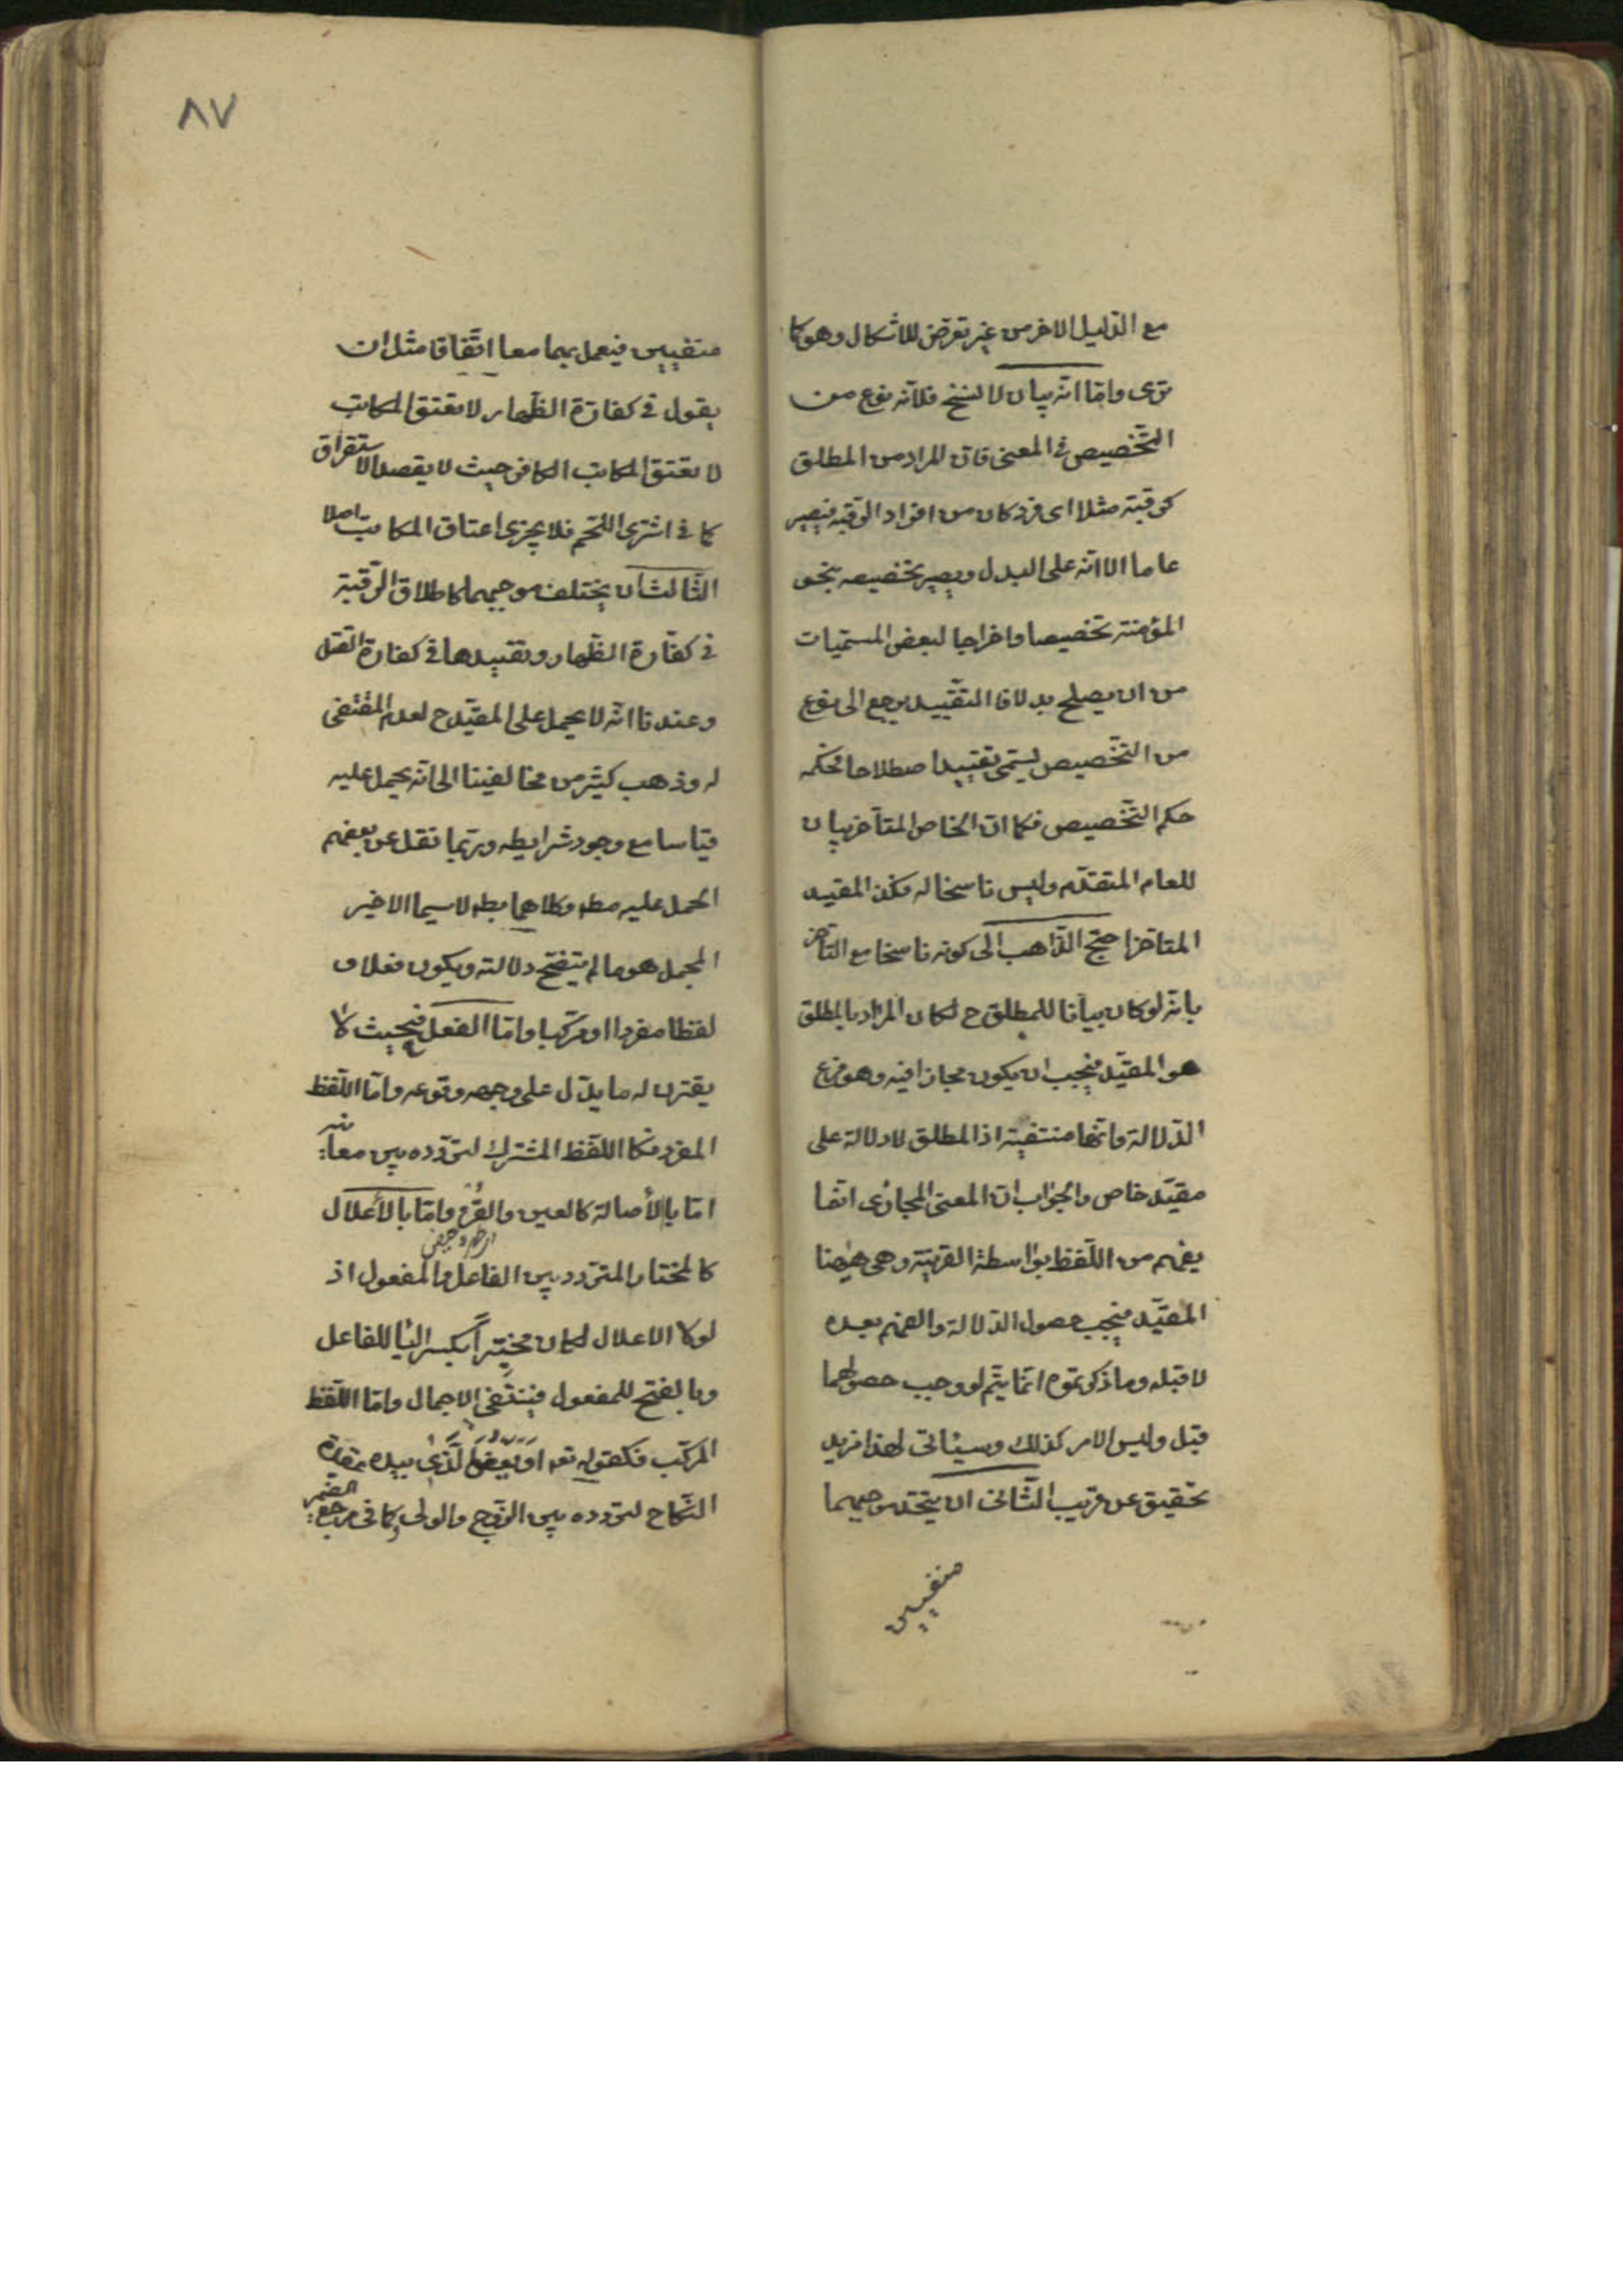 مع الدّليل الاخر من غير تعرّض للاشكال وهو كما
ترى وامّا انّه بيان لا لنسخ فلانّه نوع من
التّخصيص فى المعنى فانّ المراد من المطلق
كرقبة مثلا اى فرد كان من افراد الرّقبة فيصير
عاما الا انّه على البدل ويصير تخصيصه بنحو
المؤمنة تخصيصا واخراجا لبعض المسمّيات
من ان يصلح بدلا فا التقّييد يرجع الى نوع
من التّخصيص يسمّى تقييدا صطلاحا فحكمه
حكم التّخصيص فكما انّ الخاص المتأخر بيان
للعام المتقدّم وليس ناسخا له فكذ المقيد
المتاخّر احتج الذّاهب الى كونه ناسخا مع التأخر
بانه لو كان بيانا للمطلق ح لكان المراد بالمطلق
هو المقيّد فيجب ان يكون مجازا فيه وهو فرع
الدّلالة وانّها منتفية اذ المطلق لا دلالة على
مقيّد خاص والجواب انّ المعنى المجازى انّما
يفهم من اللّفظ بواسطة القرينة وهى هيهنا
المقيّد فيجب حصول الدّلالة والفهم بعده
لا قبله وما ذكرتموه انّما يتّم لو وجب حصولهما
قبل وليس الامر كذلك وسيئاتى لهذا مزيد
تحقيق عن قريب الثّانى ان يتّحد موجبهما
منفيين
٨٧
منفيين فيعمل بهما معا اتّفاقا مثل ان
يقول فى كفارة الظّهار لا تعتق المكاتب
لا تعتق المكاتب الكافر حيث لا يقصد الاستغراق
كما فى اشترى اللّحم فلا يجزى اعتاق المكاتب اصلا
الثّالث ان يختلف موجبهما كاطلاق الرّقبة
فى كفّارة الظّهار وتقييدها فى كفارة القتل
وعندنا انّه لا يحمل على المقيّد ح لعدم المقتضى
له وذهب كثير من مخالفينا الى انّه يحمل عليه
قياسا مع وجود شرايطه وربّما نقل عن بعضهم
الحمل عليه مط وكلاهما بط لا سيما الاخير
المجمل هو ما لم يتضح دلالته ويكون فعلا و
لفظا مفردا او مركبا وامّا الفعل فحيث لا
يقترن له ما يدّل على وجه وقوعه وامّا اللّفظ
المفرد فكا اللّفظ المشترك لتردّده بين معانيه
امّا بالأصالة كالعين والقرء وامّا بالأعلال
كالمختار المتردد بين الفاعل والمفعول اذ
لولا الاعلال لكان مختيراً بكسر اليا للفاعل
وبالفتح للمفعول فينتفى الاجمال وامّا اللّفظ
المركّب فكقوله تعه او يعفو الّذى بيده عقدة
النّكاح لتردده بين الزّوج والولى وكما فى مرجع الضّمير